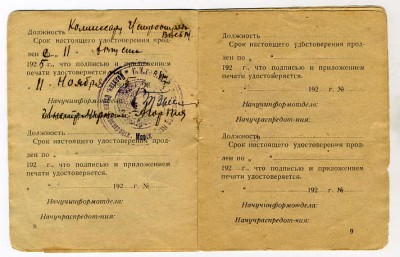 Должность Комиссару
Срок настоящего удостоверения прод-
лен с 11 Августа
192 5 г., что подписью и приложением
печати удостоверяется.
11 Ноября 192
Начучинформотдела:
Должность
Срок настоящего удостоверения прод-
лен по „ “
192 г., что подписью и приложением
печати удостоверяется.
„ “ 192 г. №
Начучинформотдела:
Начучраспредот-ния:
8
Должность
Срок настоящего удостоверения прод-
лен по „ “
192 г., что подписью и приложением
печати удостоверяется.
„ “ 192 г. №
Начучинформотдела:
Начучраспредот-ния:
Должность
Срок настоящего удостоверения прод-
лен по „ “
192 г., что подписью и приложением
печати удостоверяется.
„ “ 192 г. №
Начучинформотдела:
Начучраспредот-ния:
9